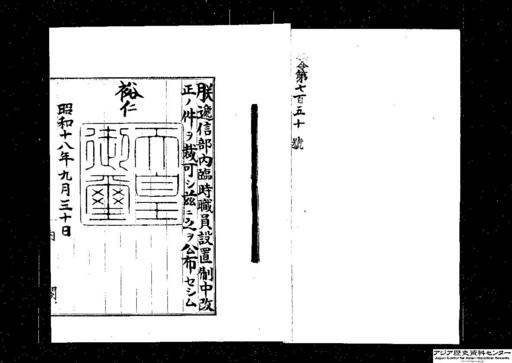 令第七百五十號
朕遞信部內臨時職員設置制中改
正ノ件ヲ裁可シ玆ニ之ヲ公布セシム
裕仁
天皇御璽
昭和十八年九月三十日
內 閣
アジア歴史資料センター
Japan Center for Asian Historical Records